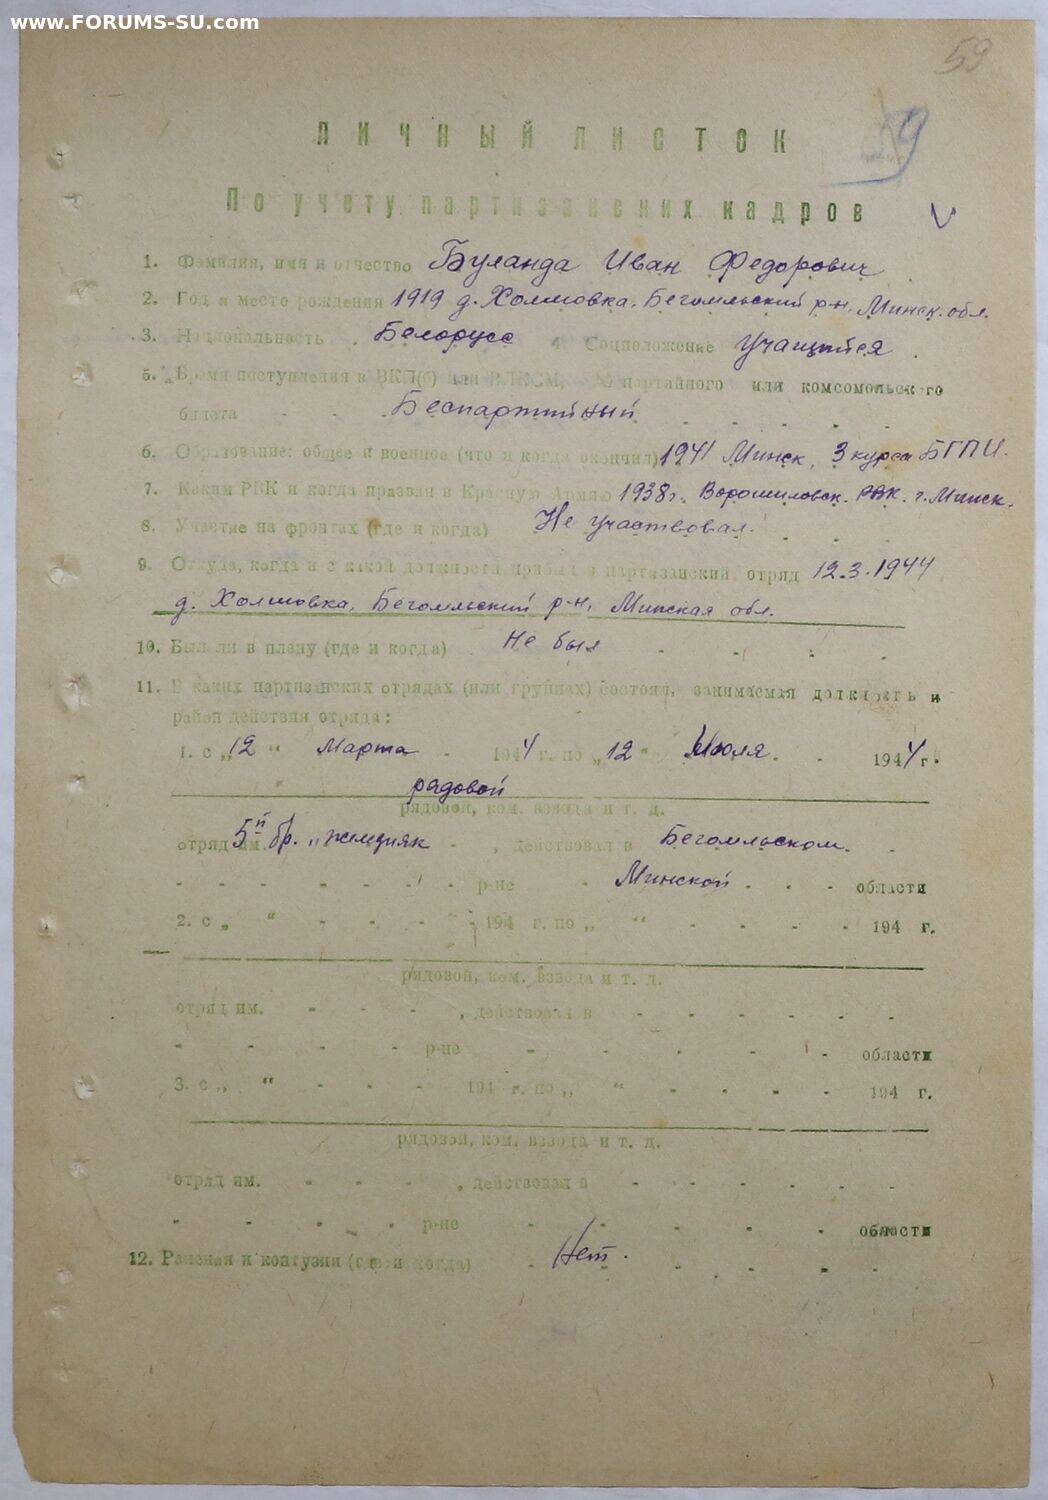 www.FORUMS-SU.com
59
9
ЛИЧНЫЙ ЛИСТОК
По учету партизанских кадров
1. Фамилия, имя и отчество Буланда Иван Федорович
2. Год и место рождения 1919 д. Холмовка, Бегомльский р-н, Минск. обл.
3. Национальность . Белорусс 4 Соцположение Учащийся .
5. Время поступления в ВКП(б) или ВЛКСМ, № партайного или комсомольского
билета - - Беспартийный - - - - -
6. Образование: общее и военное (что и когда окончил) 1941 Минск, 3 курса БГПИ.
7. Каким РВК и когда призван в Красную Армию 1938 г. Ворошиловск. РВК. г. Минск.
8. Участие на фронтах (где и когда) Не участвовал.
9. Откуда, когда и с какой должности прибыл в партизанский отряд 12.3.1944
д. Холмовка, Бегомльский р-н, Минская обл.
10. Был ли в плену (где и когда) Не был - - - -
11. В каких партизанских отрядах (или группах) состоял, занимаемая должность и
район действия отряда:
1. с „12“ Марта - 1944 г. по „12“ Июля - 1944 г.
рядовой
рядовой, ком. взвода и т. д.
отряд им. 5й бр. „ - , действовал в Бегомльском. -
- - - - - - - р-не - Минской - - - области
2. с „ “ - - - - - 194 г. по „ “ - - - - 194 г.
рядовой, ком. взвода и т. д.
отряд им. - - - , действовал в - - - - - -
- - - - р-не - - - - - области
3. с „ “ - - - 194 г. по „ “ - - - - 194 г.
рядовой, ком. взвода и т. д.
отряд им. - - - , действовал в - - - - - -
- - - - р-не - - - - - области
12. Ранения и контузии (где и когда) - Нет. - - - -